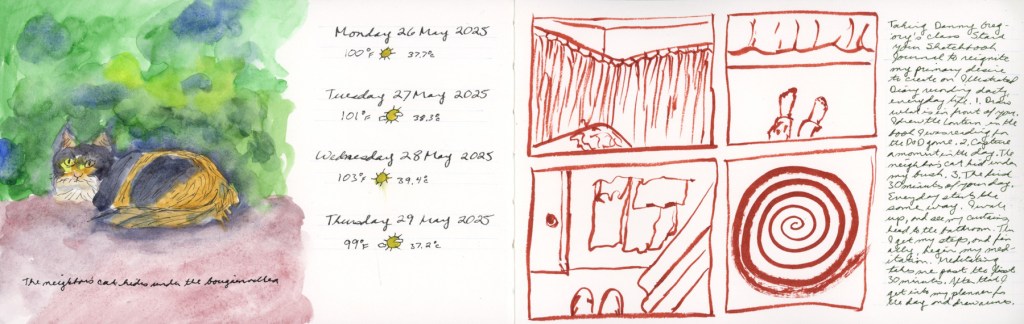 The neighbors cat hides under the bouginvillea
Monday 26 May 2025
100°F 37.7°C
Tuesday 27 May 2025
101°F 38.3°C
Wednesday 28 May 2025
103°F 39.4°C
Thursday 29 May 2025
99°F 37.2°C
Taking Danny Greg-
ory's class Start
your Sketchbook
Journal to reignite
my primary desire
to create an Illustrated
Diary recording daily
everyday life. 1. Draw
what is in front of you.
I drew the
book I was reading for
the genre. 2. Capture
a moment in the day. The
neighbor's cat hid under
my bush. 3. The first
30 minutes of your day.
Everyday starts the
same way. I wake
up, and see my curtains
head to the bathroom. Then
I get my steps, and fin-
ally, begin my med-
itation. Meditating
takes me past the first
30 minutes. After that I
get into my planner for
the day and